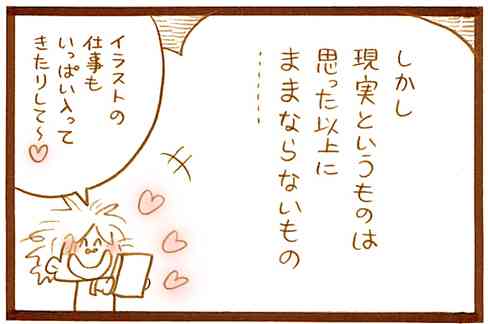 しかし
現実というものは
思った以上に
ままならないもの
………
イラストの
仕事も
いっぱい入って
きたりして〜♡